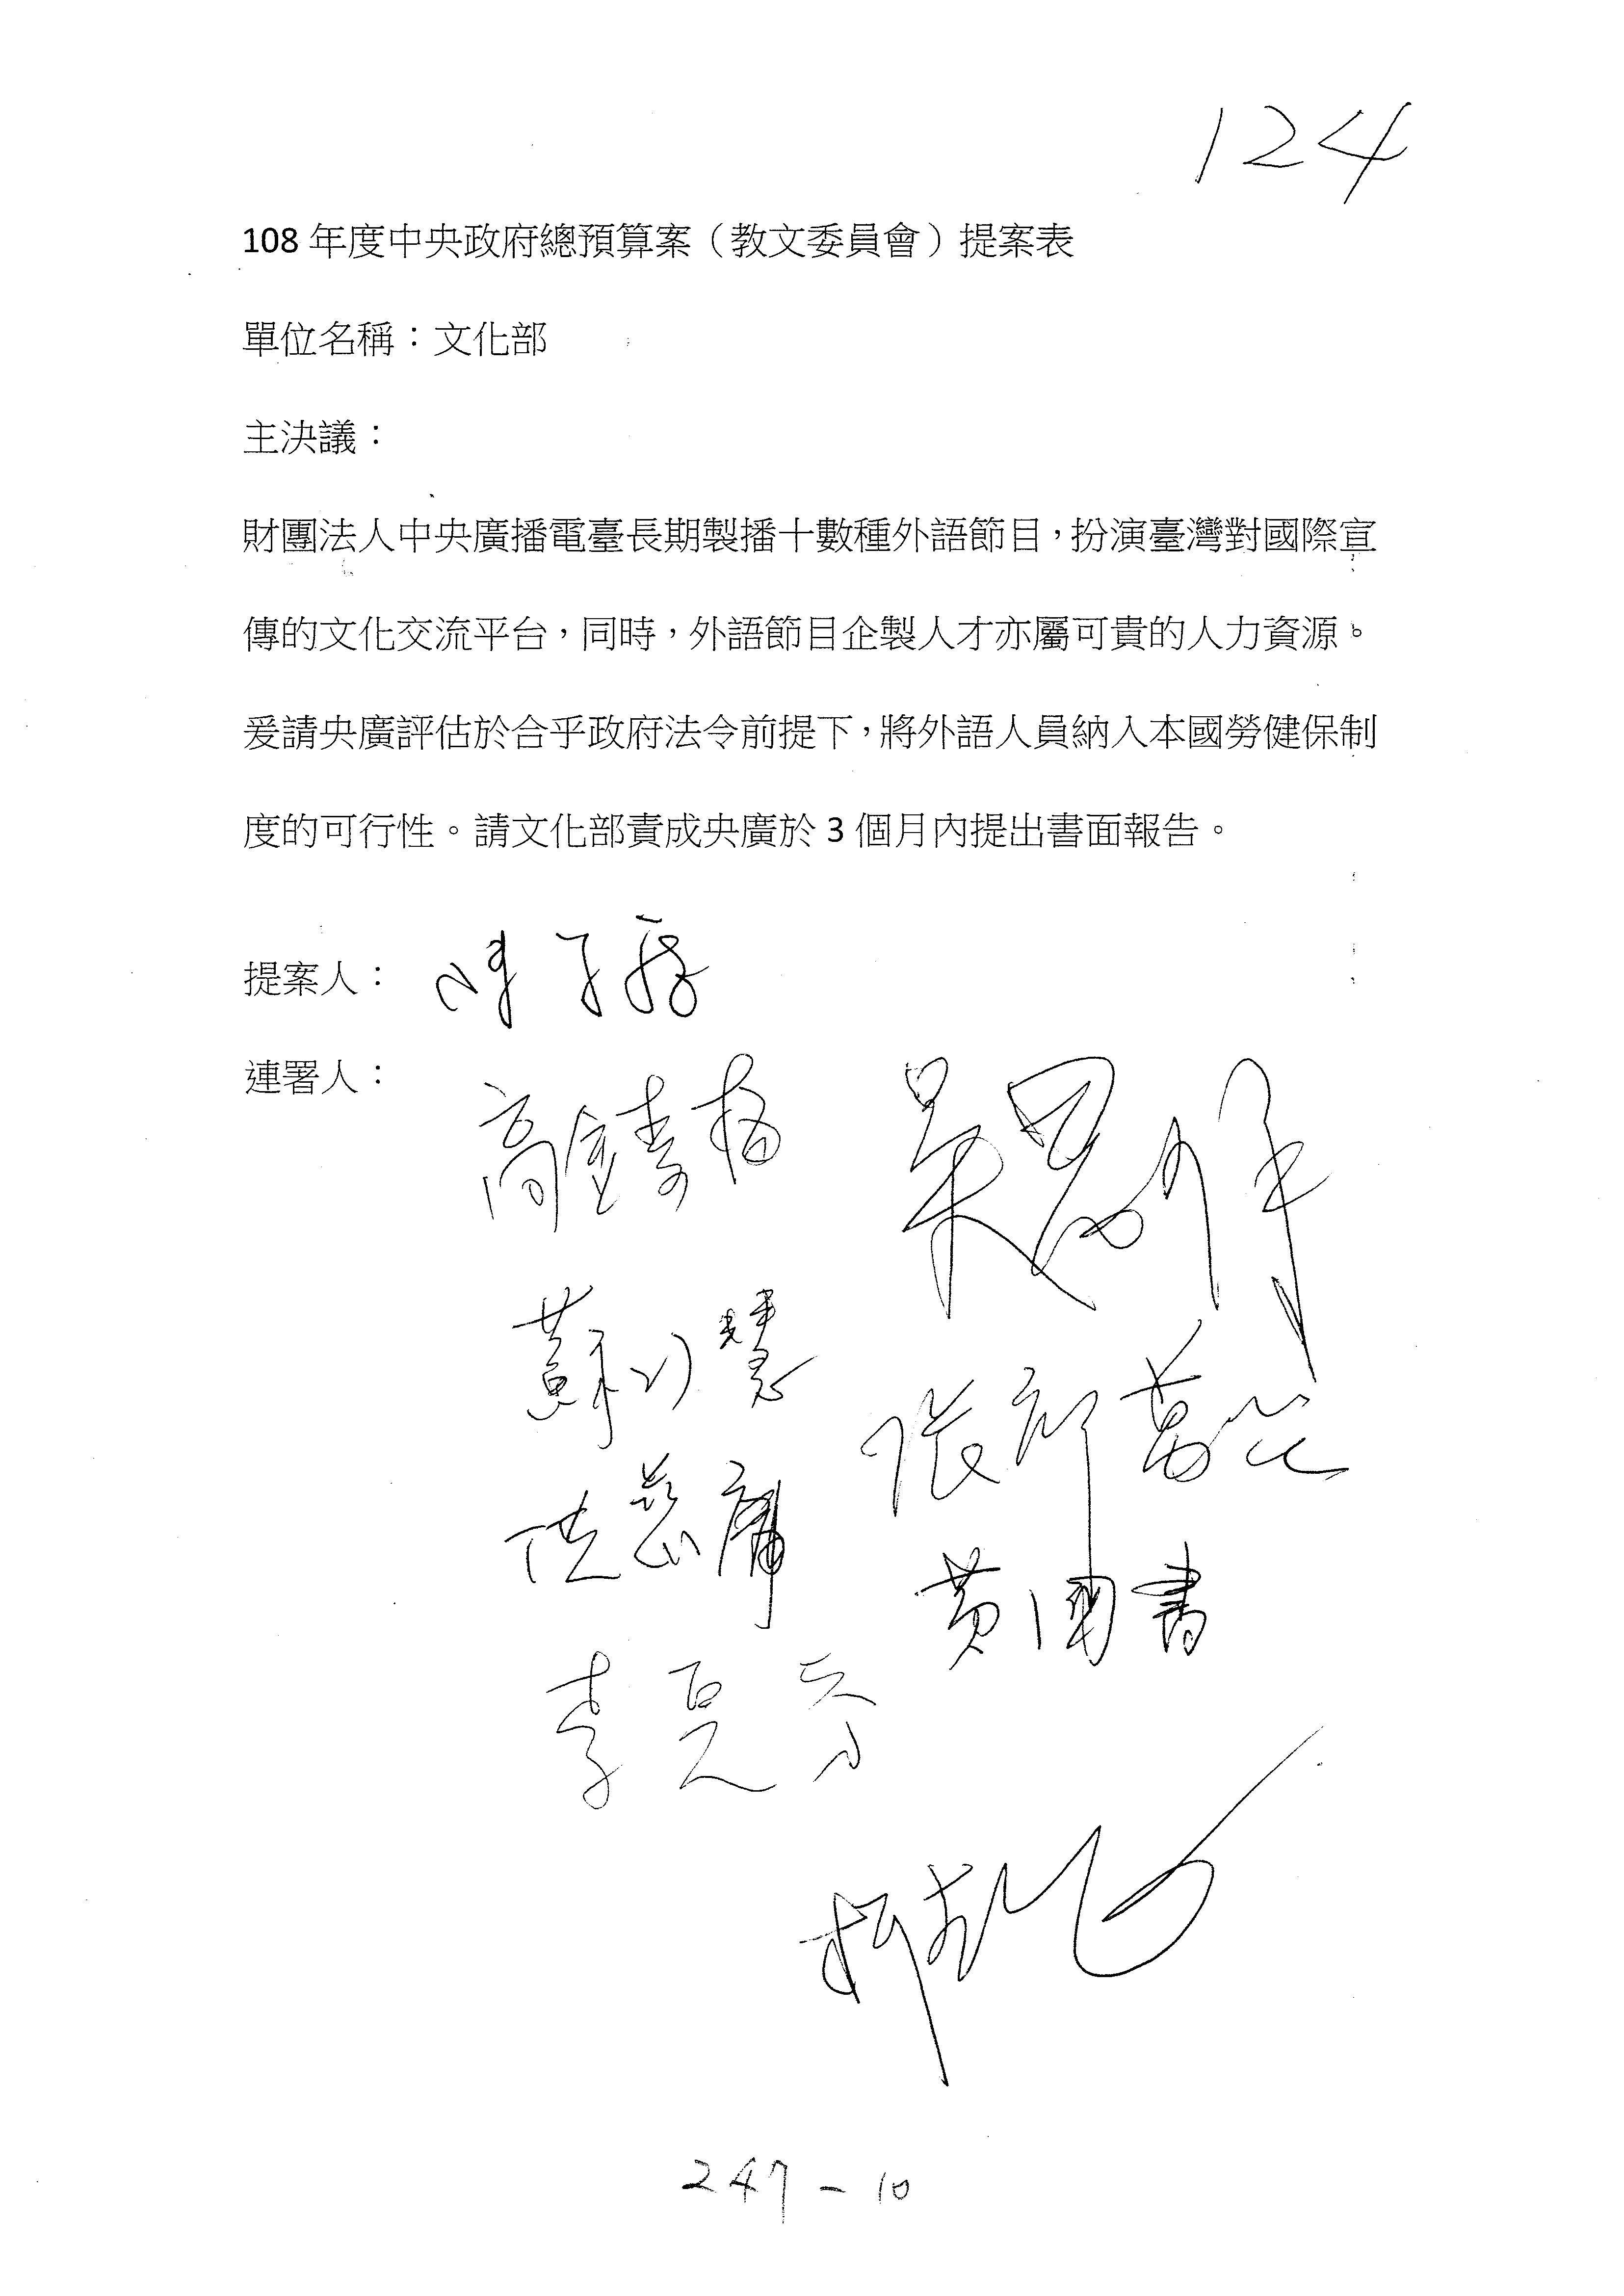 124
108 年度中央政府總預算案（教文委員會）提案表
單位名稱：文化部
主決議：
財團法人中央廣播電臺長期製播十數種外語節目，扮演臺灣對國際宣
傳的文化交流平台，同時，外語節目企製人才亦屬可貴的人力資源。
爰請央廣評估於合乎政府法令前提下，將外語人員納入本國勞健保制
度的可行性。請文化部責成央廣於 3 個月內提出書面報告。
提案人：
連署人：
高金素梅
蘇巧慧
張廖萬堅
黃國書
247-10